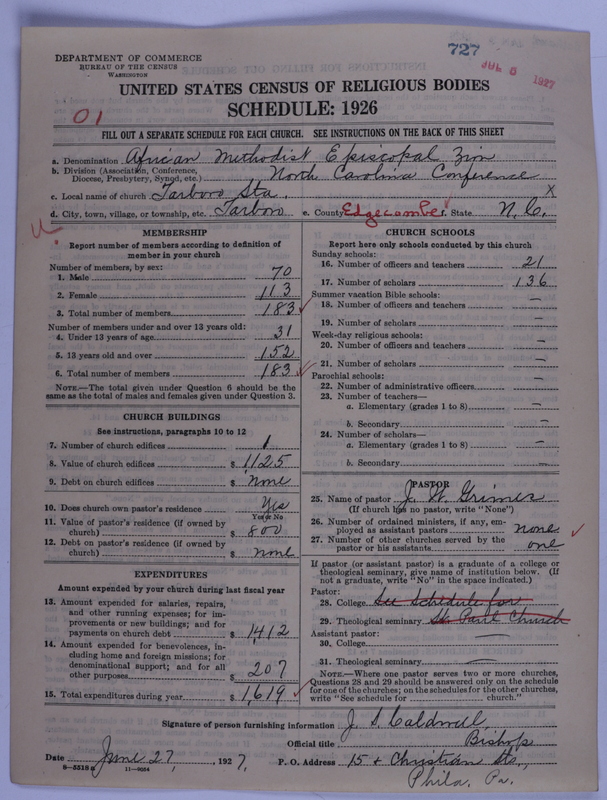 727
1927
DEPARTMENT OF COMMERCE
BUREAU OF THE CENSUS
WASHINGTON
UNITED STATES CENSUS OF RELIGIOUS BODIES
SCHEDULE: 1926
01
FILL OUT A SEPARATE SCHEDULE FOR EACH CHURCH. SEE INSTRUCTIONS ON THE BACK OF THIS SHEET
a. Denomination African Methodist Episcopal Zion
b. Division (Association, Conference, Diocese, Presbytery, Synod, etc.) North Carolina Conference
c. Local name of church Tarboro Sta. X
d. City, town, village, or township, etc. Tarboro e. County Edgecombe f. State N. C.
MEMBERSHIP
Report number of members according to definition of
member in your church
Number of members, by sex:
1. Male 70
2. Female 113
3. Total number of members 183
Number of members under and over 13 years old:
4. Under 13 years of age 31
5. 13 years old and over 152
6. Total number of members 183
NOTE.—The total given under Question 6 should be the
same as the total of males and females given under Question 3.
CHURCH BUILDINGS
See instructions, paragraphs 10 to 12
7. Number of church edifices 1
8. Value of church edifices $ 1125
9. Debt on church edifices $ none
10. Does church own pastor's residence Yes
Yes or No
11. Value of pastor's residence (if owned by
church) $ 800
12. Debt on pastor's residence (if owned by
church) $ none
EXPENDITURES
Amount expended by your church during last fiscal year
13. Amount expended for salaries, repairs,
and other running expenses; for im-
provements or new buildings; and for
payments on church debt $ 1412
14. Amount expended for benevolences, in-
cluding home and foreign missions; for
denominational support; and for all
other purposes $ 207
15. Total expenditures during year $ 1,619
CHURCH SCHOOLS
Report here only schools conducted by this church
Sunday schools:
16. Number of officers and teachers 21
17. Number of scholars 136
Summer vacation Bible schools:
18. Number of officers and teachers —
19. Number of scholars —
Week-day religious schools:
20. Number of officers and teachers —
21. Number of scholars —
Parochial schools:
22. Number of administrative officers —
23. Number of teachers—
a. Elementary (grades 1 to 8) —
b. Secondary —
24. Number of scholars—
a. Elementary (grades 1 to 8) —
b. Secondary —
PASTOR
25. Name of pastor J. W. Grimes
(If church has no pastor, write "None")
26. Number of ordained ministers, if any, em-
ployed as assistant pastors none
27. Number of other churches served by the
pastor or his assistants one
If pastor (or assistant pastor) is a graduate of a college or
theological seminary, give name of institution below. (If
not a graduate, write "No" in the space indicated.)
Pastor:
28. College See Schedule for
29. Theological seminary St. Paul Church
Assistant pastor:
30. College —
31. Theological seminary —
NOTE.—Where one pastor serves two or more churches,
Questions 28 and 29 should be answered only on the schedule
for one of the churches; on the schedules for the other churches,
write "See schedule for church."
Signature of person furnishing information J. S. Caldwell,
Official title Bishop
Date June 27, 1927, P. O. Address 15 & Christian Sts,
8—5518a 11—9054
Phila, Pa.